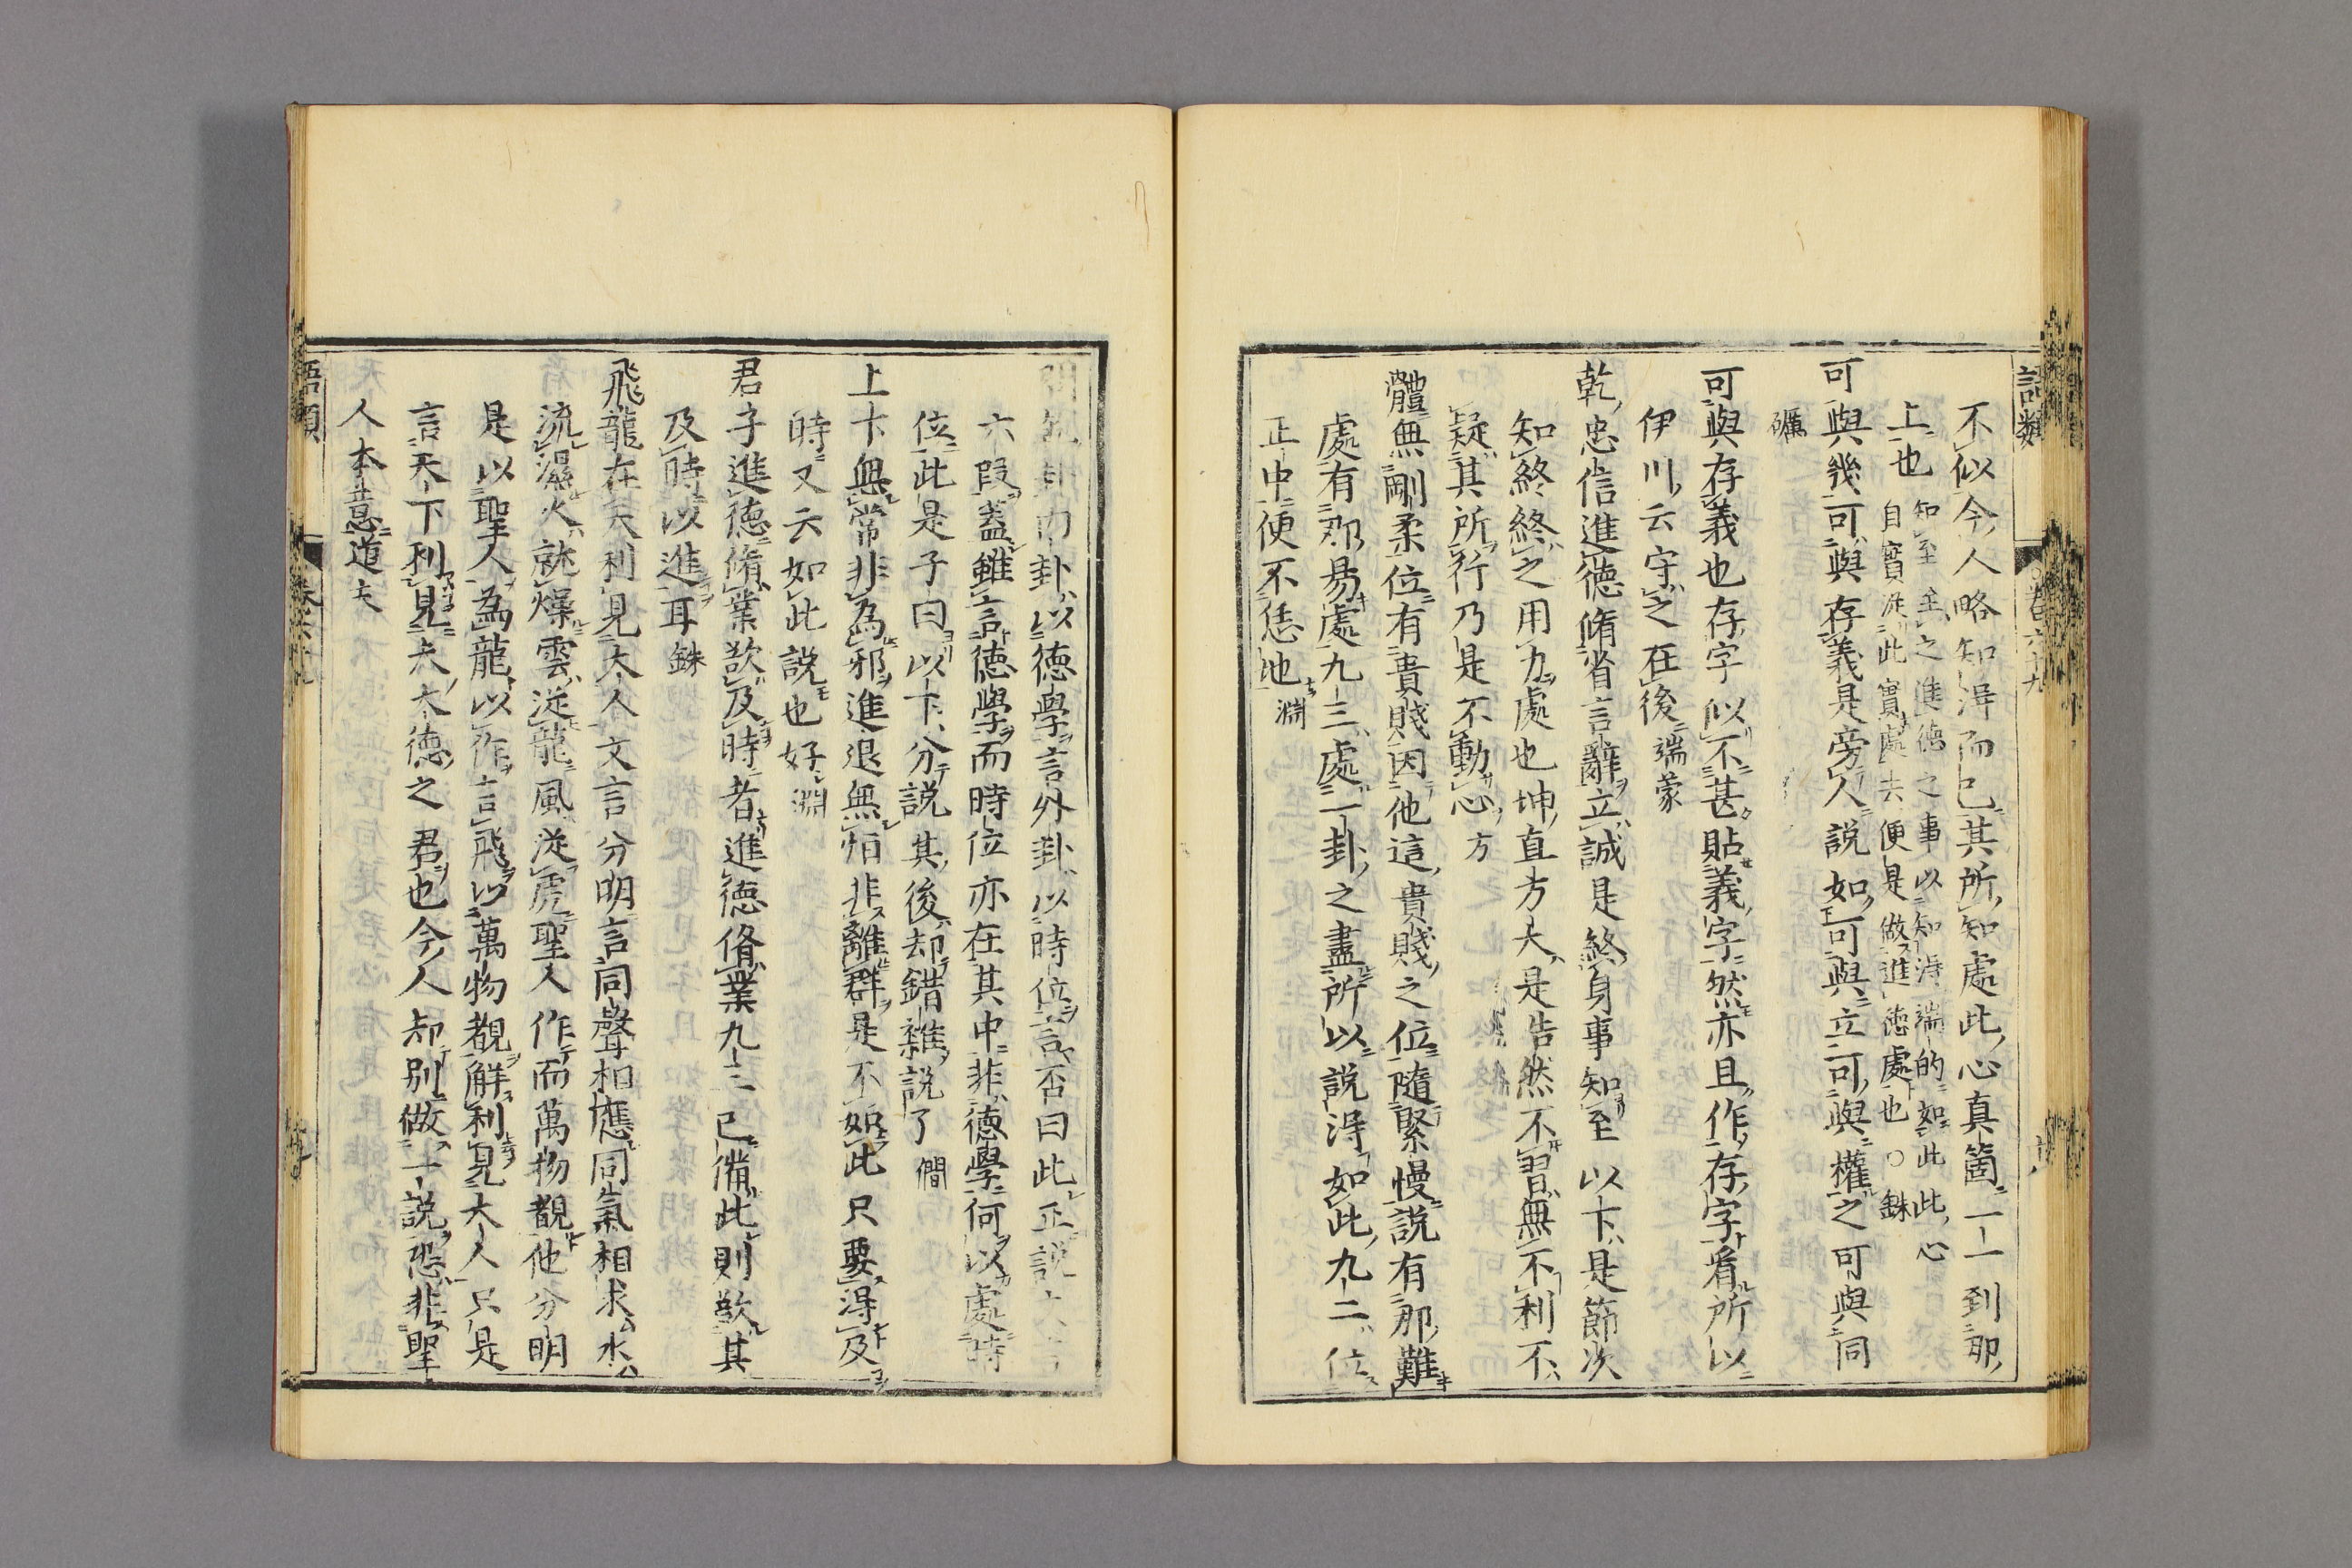 語類 卷六十九
不似今人略知得而已其所知處此心真箇一一到那
上也
知至至之進德之事以知得端的如此此心
自實從此實處去便是做進德處也○銖
可與幾可與存義是旁人說如可與立可與權之可與同
礪
可與存義也存字似不甚貼義字然亦且作存字看所以
伊川云守之在後端蒙
乾忠信進德脩省言辭立誠是終身事知至以下是節次
知終終之用力處也坤直方大是告然不習無不利不
疑其所行乃是不動心方
體無剛柔位有貴賤因他這貴賤之位隨緊慢說有那難
處有那易處九三處一卦之盡所以說得如此九二位
正中便不恁地淵
問乾卦內卦以德學言外卦以時位言否曰此正說文言
六段蓋雖言德學而時位亦在其中非德學何以處時
位此是子曰以下分說其後却錯雜說了僩
上下無常非為邪進退無恒非離群是不如此只要得及
時又云如此說也好淵
君子進德脩業欲及時者進德脩業九三已備此則欲其
及時以進耳銖
飛龍在天利見大人文言分明言同聲相應同氣相求水
流濕火就燥雲從龍風從虎聖人作而萬物覩他分明
是以聖人為龍以作言飛以萬物覩解利見大人只是
言天下利見夫大德之君也今人却別做一說恐非聖
人本意道夫
語類 卷六十九